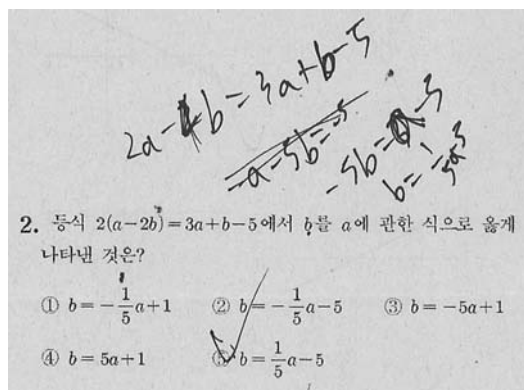 2a-4b=3a+b-5
-a-5b=-5
-5b=a-5
2. 등식 2(a-2b)=3a+b-5에서 b를 a에 관한 식으로 옳게
나타낸 것은?
① b=-\frac{1}{5}a+1 ② b=-\frac{1}{5}a-5 ③ b=-5a+1
④ b=5a+1 ⑤ b=\frac{1}{5}a-5